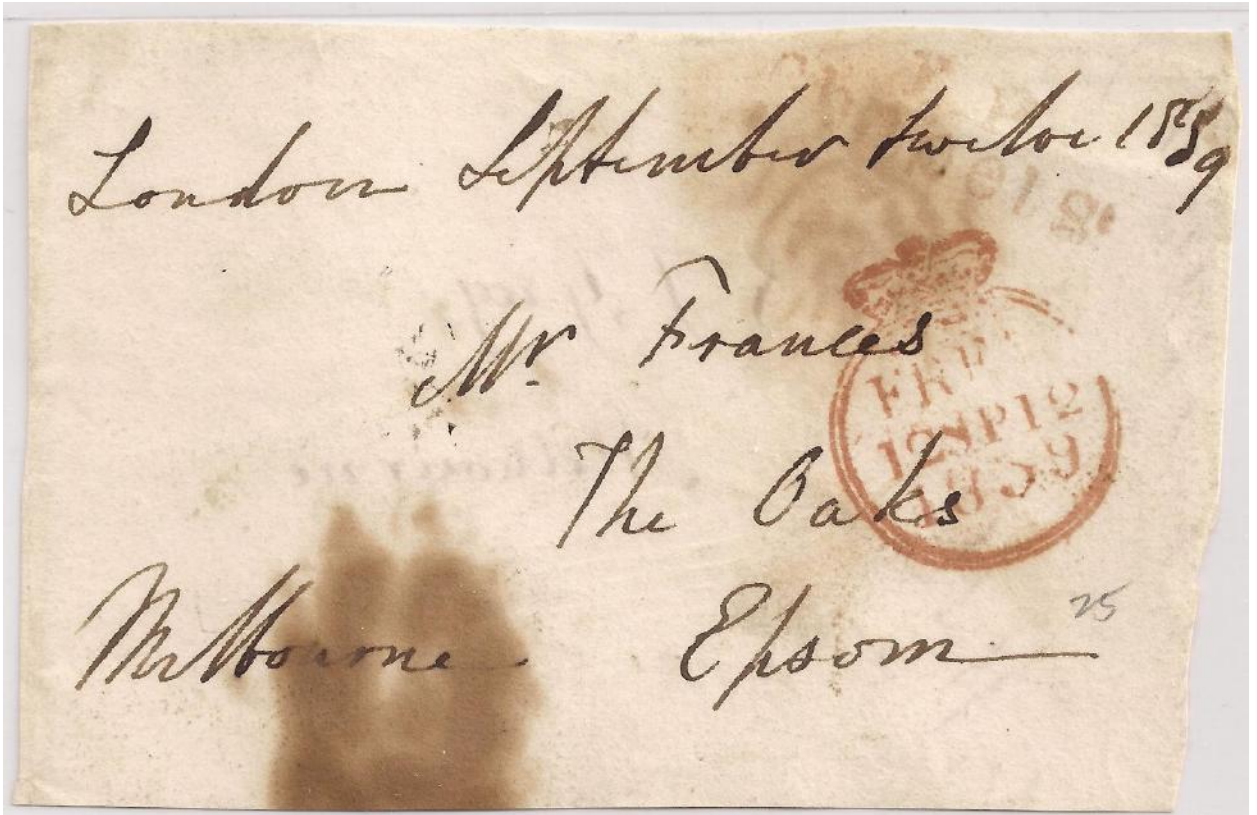 London September twelve 1839
Mr. Frances
The Oaks
Melbourne Epsom
25
12SP12
1839